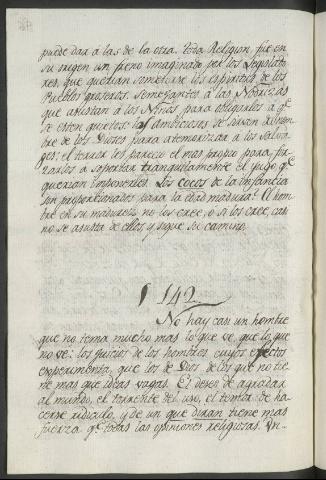 puede dar á las de la otra. Toda Religion fue en
su origen un freno imaginado por los Legislado-
res, que querian someterse los espiritus de los
Pueblos groseros. Semejantes á las Nodrizas
que asustan á los Niños para obligarlos á qe.
se esten quietos: los ambiciosos se sirven del nom-
bre de los Dioses para atemorizar á los Salva-
ges; el terror les parecio el mas propio para for-
zarlos á soportar tranquilamente el yugo qe.
querian imponerles. Los cocos de la infancia
son proporcionados para la edad madura? El hom-
bre en su madurez no los cree, ó si los cree, casi
no se asusta de ellos, y sigue su camino.
§ 142
No hay casi un hombre
que no tema mucho mas lo que ve, que lo que
no ve: los juicios de los hombres cuyos efectos
esperimenta, que los de Dios de los que no tie-
ne mas que ideas vagas. El deseo de agradar
al mundo, el torrente del uso, el temor de ha-
cerse ridiculo, y de un que diran tiene mas
fuerza qe. todas las opiniones religiosas. Un-